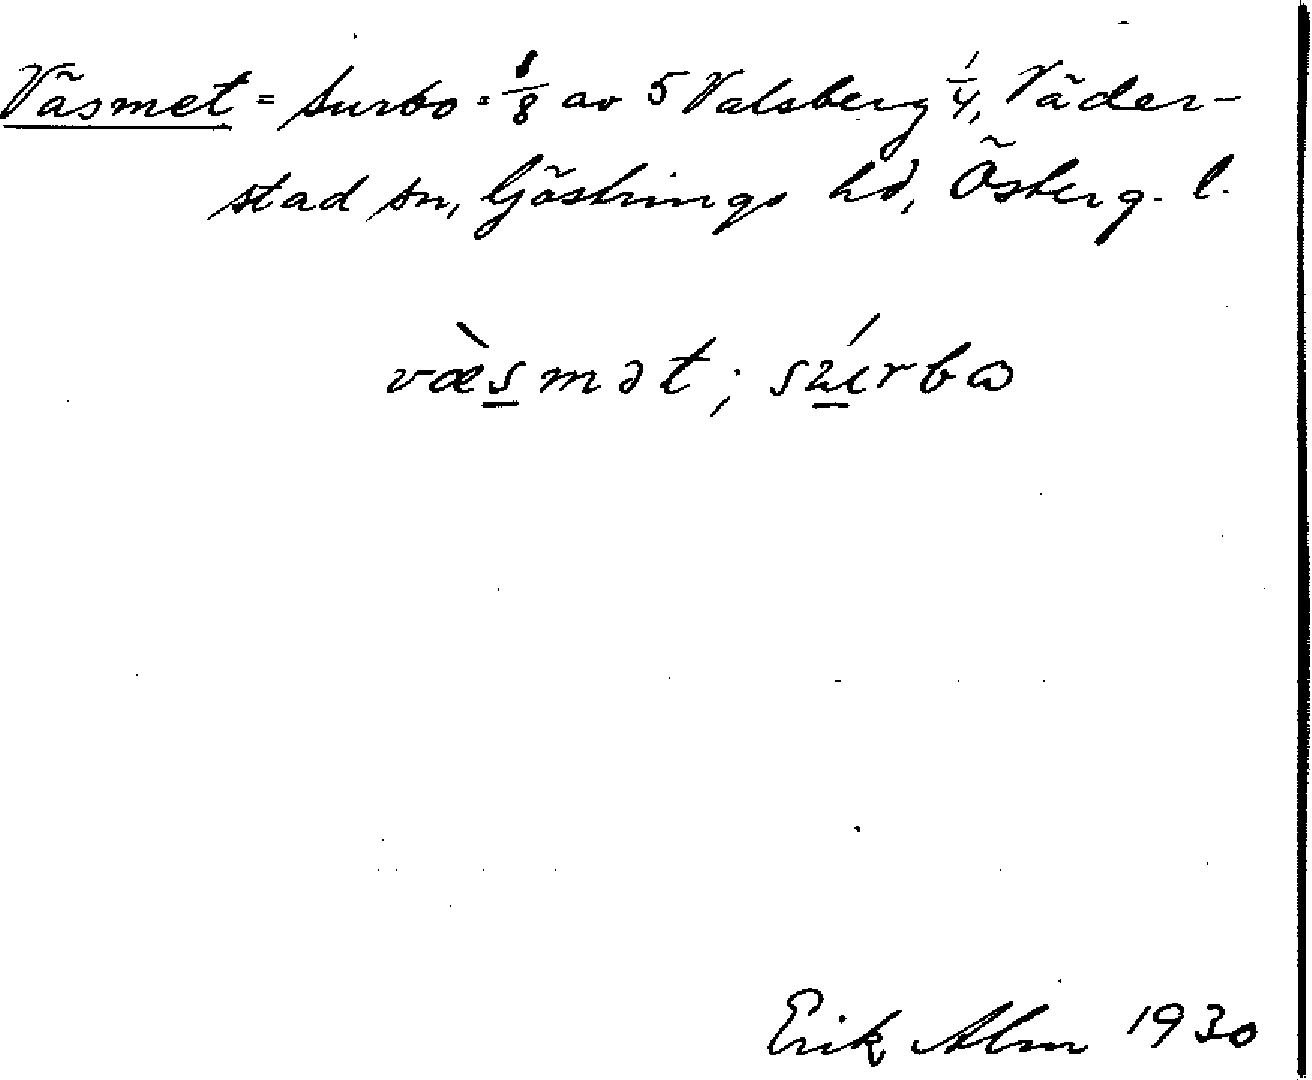 Väsmet = Surbo = 1/8 av 5 Valsberg 1/4, Väder-
stad sn, Göstrings hd, Österg. l.
væ̀s̲mət; sú̲rbɷ
Erik Alm 1930